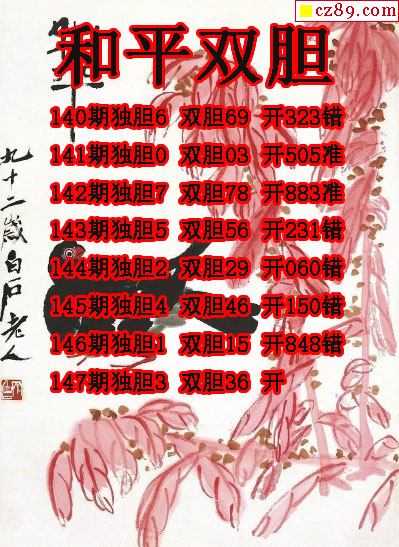 cz89.com
和平双胆
140期独胆6 双胆69 开323错
141期独胆0 双胆03 开505准
142期独胆7 双胆78 开883准
143期独胆5 双胆56 开231错
144期独胆2 双胆29 开060错
145期独胆4 双胆46 开150错
146期独胆1 双胆15 开848错
147期独胆3 双胆36 开
九十二岁白石老人